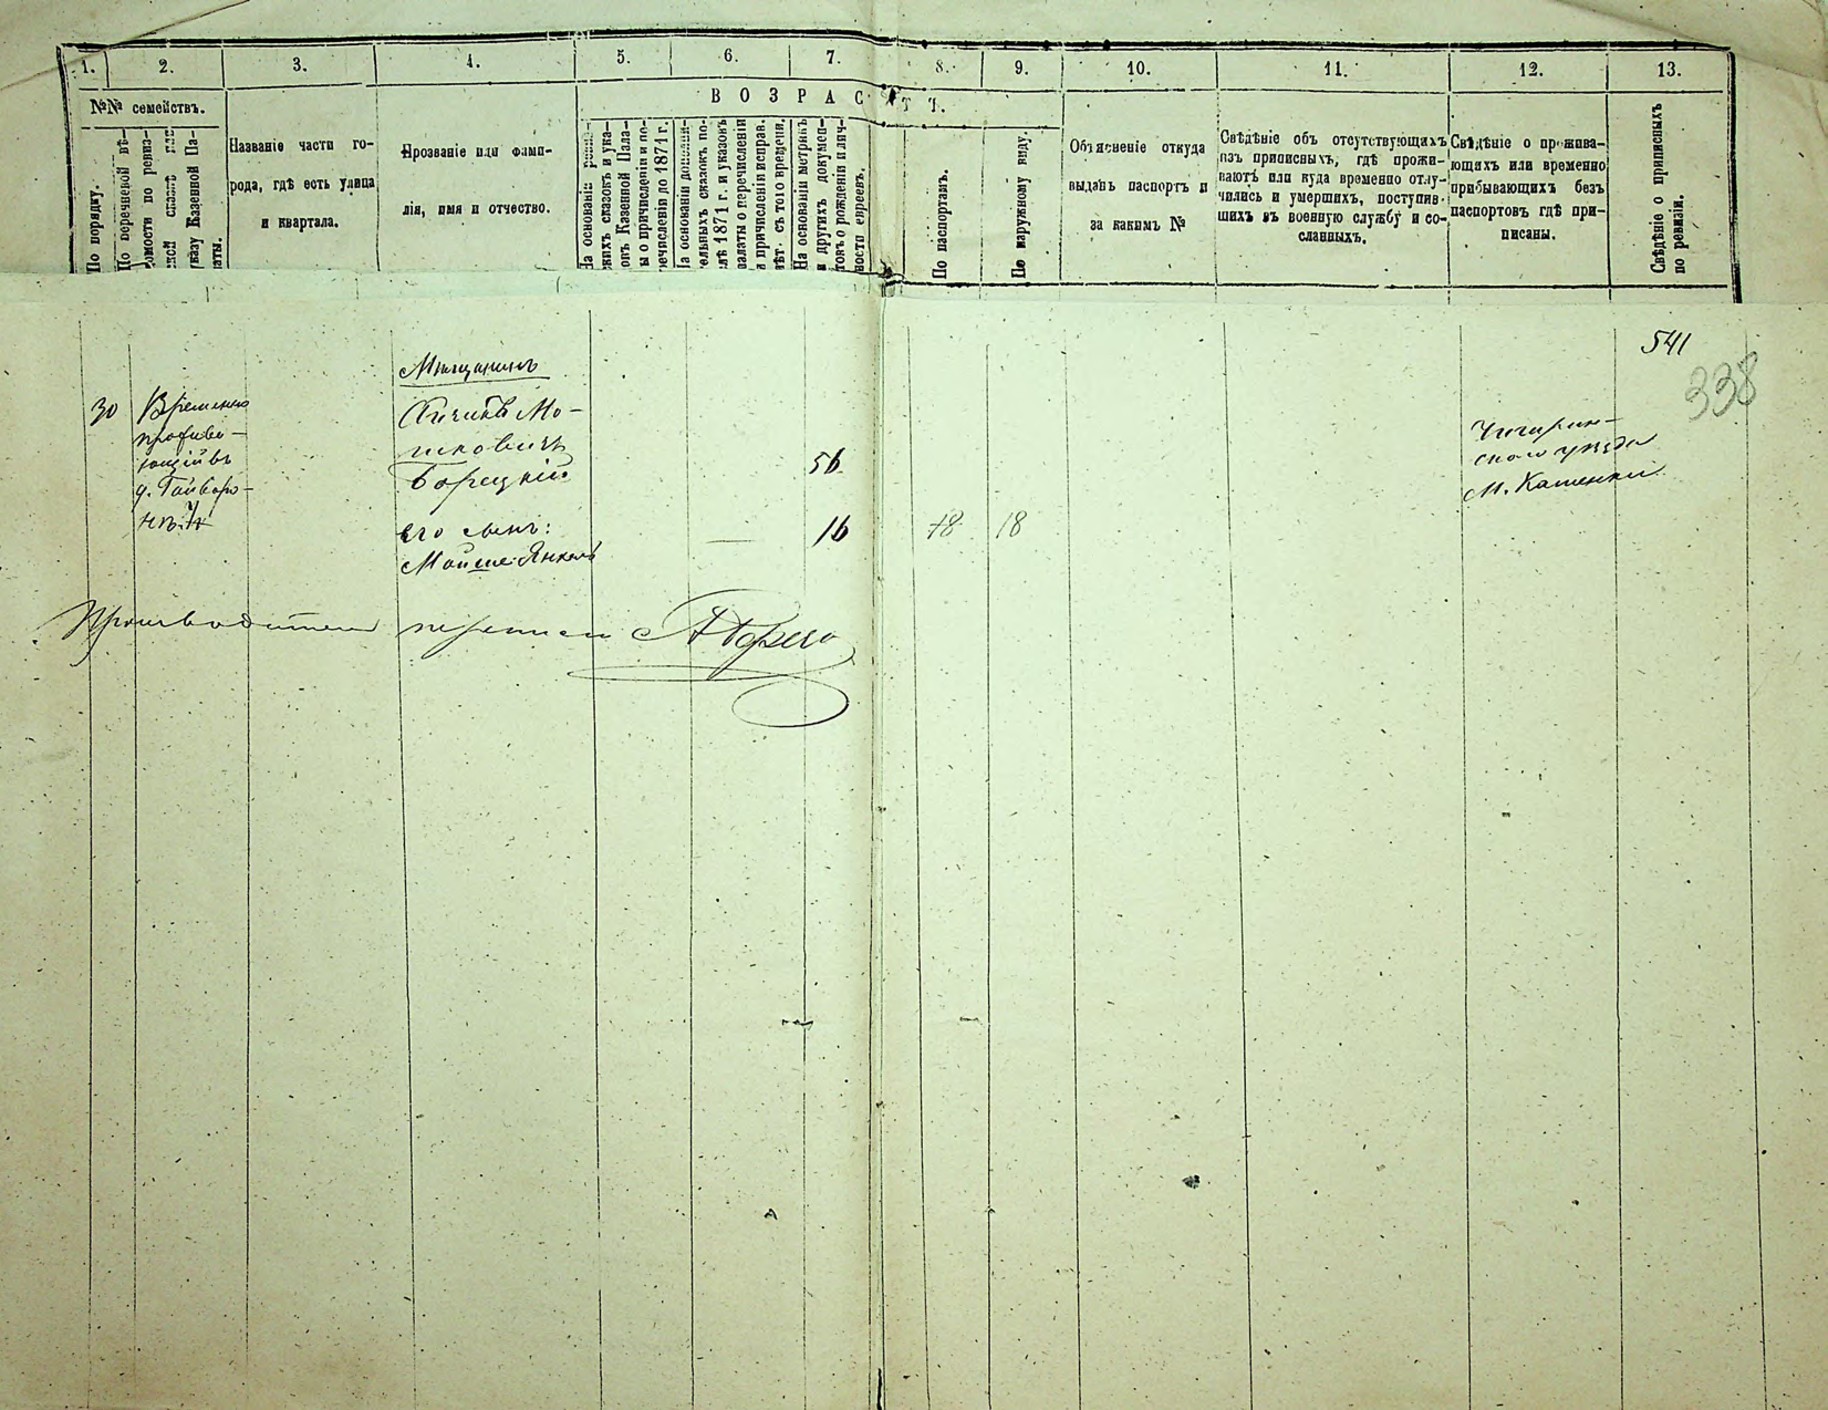 1.
2.
3.
4.
5.
6.
7.
8.
9.
10.
11.
12.
13.
№№ семействъ.
ВОЗРАСТЪ.
По порядку.
По перечневой вѣ-
домости по ревиз-
ской сказкѣ или
указу Казенной Па-
латы.
Названіе части го-
рода, гдѣ есть улица
и квартала.
Прозваніе или фами-
лія, имя и отчество.
На основаніи ревиз-
скихъ сказокъ и ука-
зовъ Казенной Пала-
ты о причисленіи и пе-
речисленіи до 1871 г.
На основаніи дополни-
тельныхъ сказокъ по-
слѣ 1871 г. и указовъ
палаты о перечисленіи
и причисленіи исправ.
лѣт. съ того времени.
На основаніи метрикъ
и другихъ докумен-
товъ о рожденіи и лич-
ности евреевъ.
По паспортамъ.
По наружному виду.
Объясненіе откуда
выданъ паспортъ и
за какимъ №
Свѣдѣніе объ отсутствующихъ
изъ приписныхъ, гдѣ прожи-
ваютъ или куда временно отлу-
чились и умершихъ, поступив-
шихъ въ военную службу и со-
сланныхъ.
Свѣдѣніе о прожива-
ющихъ или временно
прибывающихъ безъ
паспортовъ гдѣ при-
писаны.
Свѣдѣніе о приписныхъ
по ревизіи.
541
338
Мѣщанинъ
30
Временно
прожива-
ющій въ
д. Гайворо-
Мо-
шковичъ
Борецкій
56
его сынъ:
Мойше-Янкель
16
18
18
Чигирин-
скаго уѣзда
М. Каменки
Производитель переписи